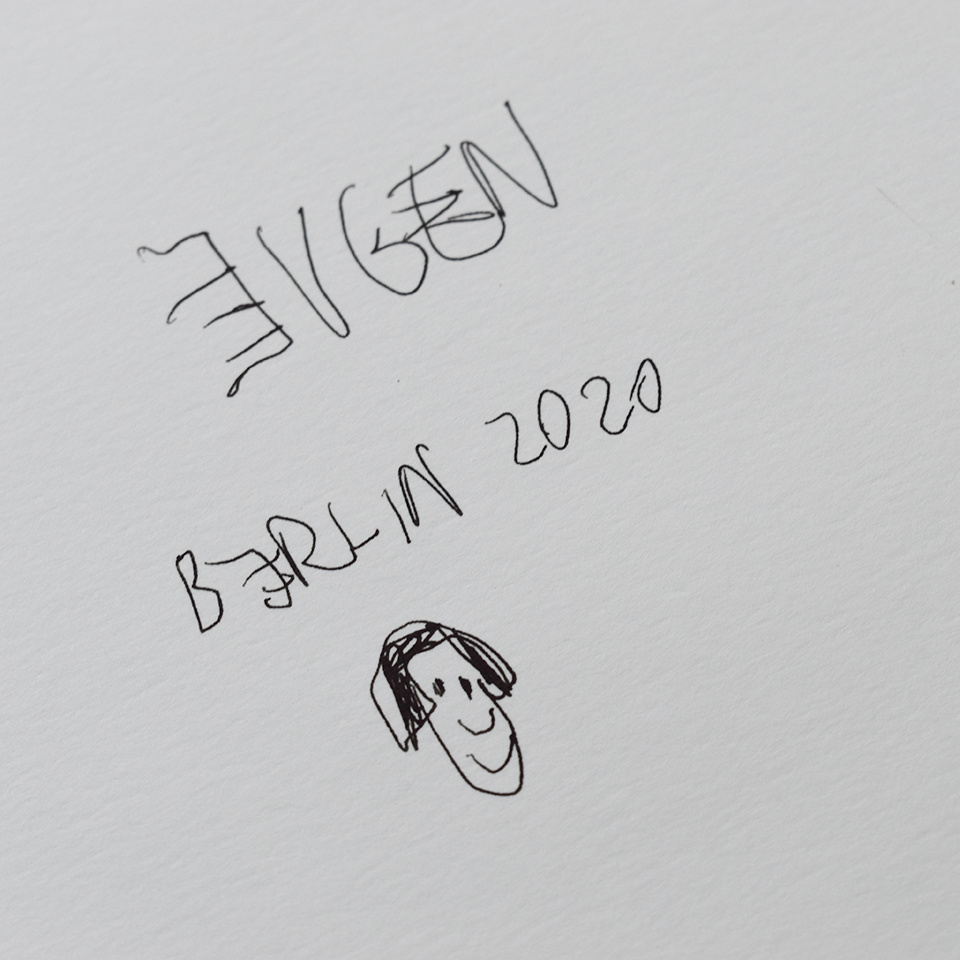 EVGEN
BERLIN 2020